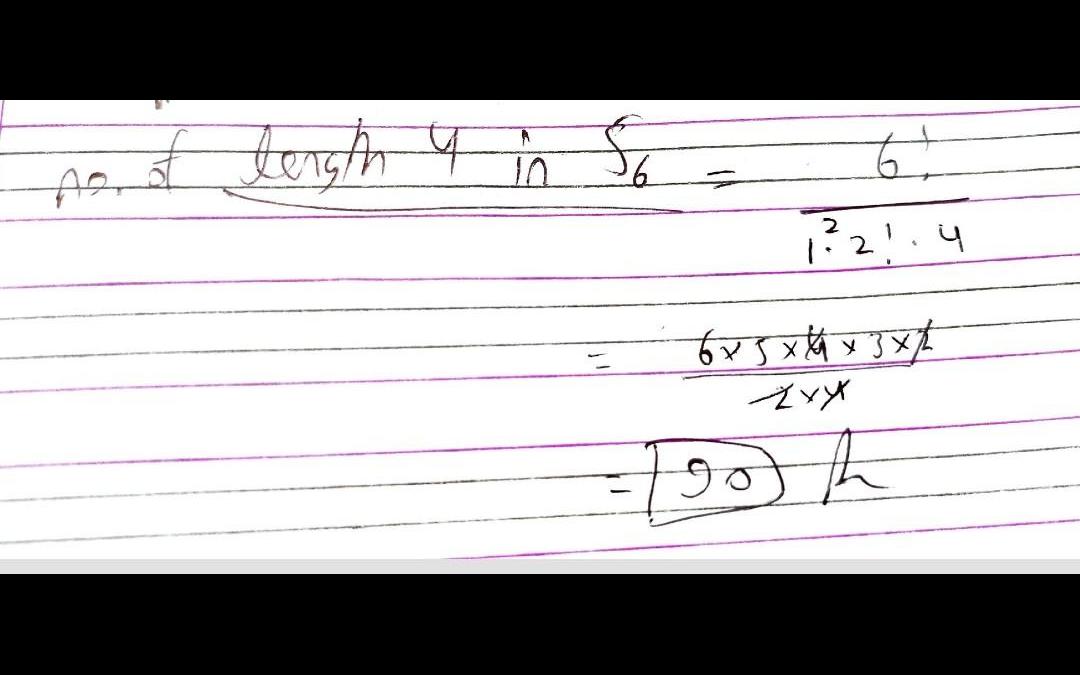 no. of length 4 in S₆ = 6! / 1².2!.4
= 6×5×4×3×2 / 2×4
= 90